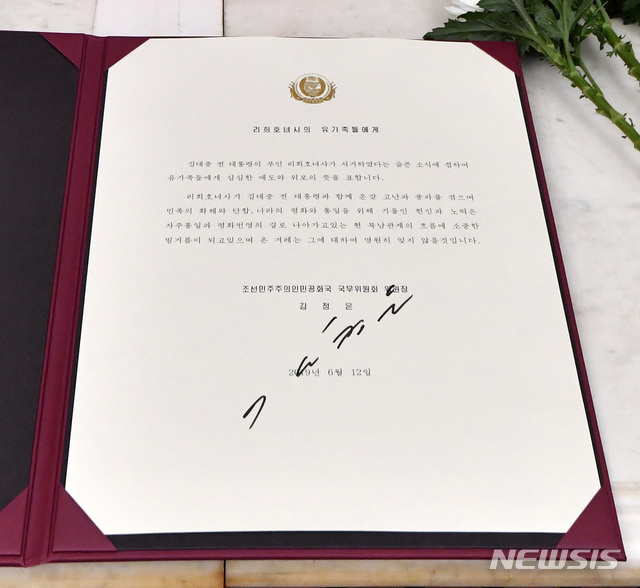 리희호녀사의 유가족들에게
김대중 전 대통령의 부인 리희호녀사가 서거하였다는 슬픈 소식에 접하여
유가족들에게 심심한 애도와 위로의 뜻을 표합니다.
리희호녀사가 김대중 전 대통령과 함께 온갖 고난과 풍파를 겪으며
민족의 화해와 단합, 나라의 평화와 통일을 위해 기울인 헌신과 노력은
자주통일과 평화번영의 길로 나아가고있는 현 북남관계의 흐름에 소중한
밑거름이 되고있으며 온 겨레는 그에 대하여 영원히 잊지 않을것입니다.
조선민주주의인민공화국 국무위원회 위원장
김 정 은
2019년 6월 12일
NEWSIS